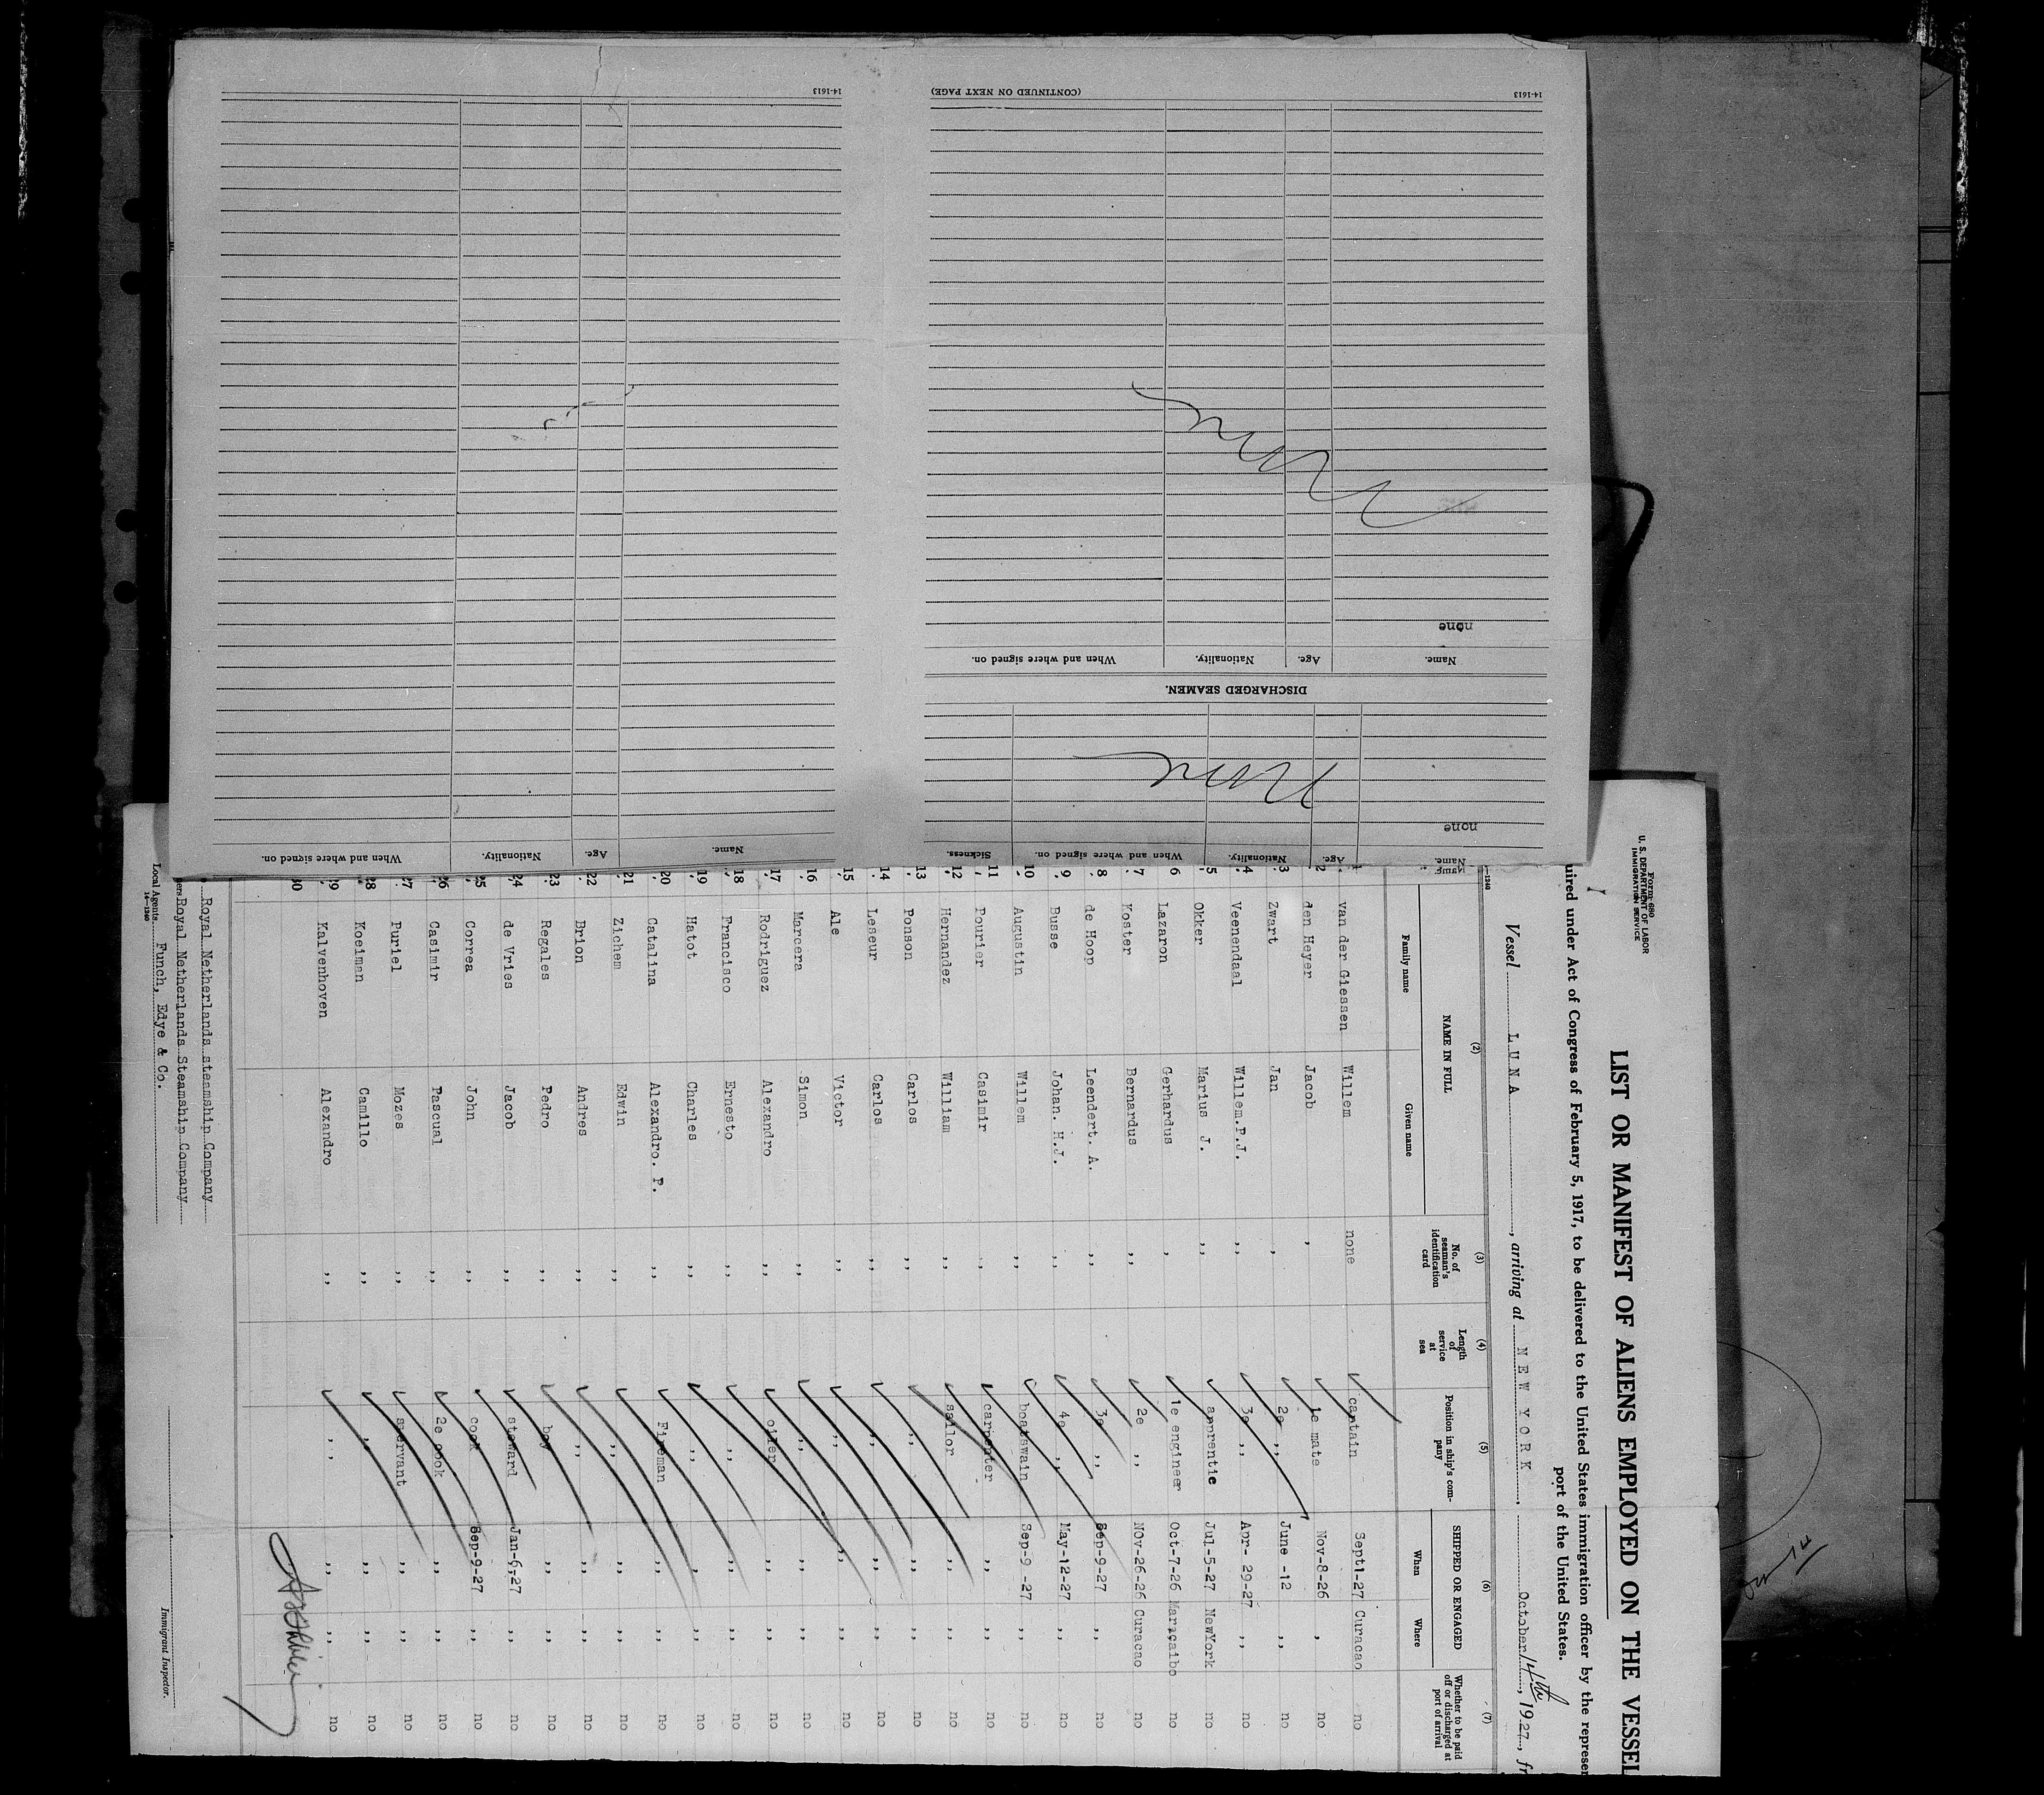 14-1613
(CONTINUED ON NEXT PAGE)
14-1613
none
None
Name. Age. Nationality. When and where signed on.
DISCHARGED SEAMEN.
None
none
Name. Age. Nationality. When and where signed on. Sickness.
Name. Age. Nationality. When and where signed on.
Form 680
U. S. DEPARTMENT OF LABOR
IMMIGRATION SERVICE
LIST OR MANIFEST OF ALIENS EMPLOYED ON THE VESSEL
uired under Act of Congress of February 5, 1917, to be delivered to the United States immigration officer by the represen
port of the United States.
Vessel LUNA, arriving at NEW YORK. October 14th, 1927, fr
(2) (3) (4) (5) (6) (7)
NAME IN FULL
Family name Given name
No. of seaman's identification card
Length of service at sea
Position in ship's company
SHIPPED OR ENGAGED
When Where
Whether to be paid off or discharged at port of arrival
van der Giessen Willem none captain Sept1-27 Curacao no
2 den Heyer Jacob , 1e mate Nov-8-26 , no
3 Zwart Jan , 2e ,, June -12 ,, no
4 Veenendaal Willem.P.J. ,, 3e ,, Apr- 29-27 ,, no
5 Okker Marius J. ,, apprentie Jul-5-27 NewYork no
6 Lazaron Gerhardus , 1e engineer Oct-7-26 Maracaibo no
7 Koster Bernardus ,, 2e ,, NOv-26-26 Curacao no
8 de Hoop Leendert. A. ,, 3e ,, Sep-9-27 ,, no
9 Busse Johan. H.J. ,, 4e ,, May-12-27 ,, no
10 Augustin Willem ,, boatswain Sep-9 -27 ,, no
11 Pourier Casimir ,, carpenter ,, ,, no
12 Hernandez William ,, sailor ,, ,, no
13 Ponson Carlos ,, ,, ,, ,, no
14 Leseur Carlos ,, ,, ,, ,, no
15 Ale Victor ,, ,, ,, ,, no
16 Marcera Simon ,, ,, ,, ,, no
17 Rodriguez Alexandro ,, oiler ,, ,, no
18 Francisco Ernesto ,, ,, ,, ,, no
19 Hatot Charles ,, ,, , ,, no
20 Catalina Alexandro. P. ,, Fireman ,, ,, no
21 Zichem Edwin ,, ,, ,, ,, no
22 Brion Andres ,, ,, ,, ,, no
23 Regales Pedro ,, boy ,, ,, no
24 de Vries Jacob ,, steward Jan-6-27 ,, no
25 Correa John ,, cook Sep-9-27 ,, no
26 Casimir Pascual ,, 2e cook ,, ,, no
27 Puriel Mozes ,, servant ,, ,, no
28 Koeiman Camillo ,, ,, ,, ,, no
29 Kalvenhoven Alexandro ,, ,, ,, ,, no
30
Royal Netherlands steamship Company
Royal Netherlands Steamship Company
Local Agents Funch, Edye & Co.
14-1240
Immigrant Inspector.